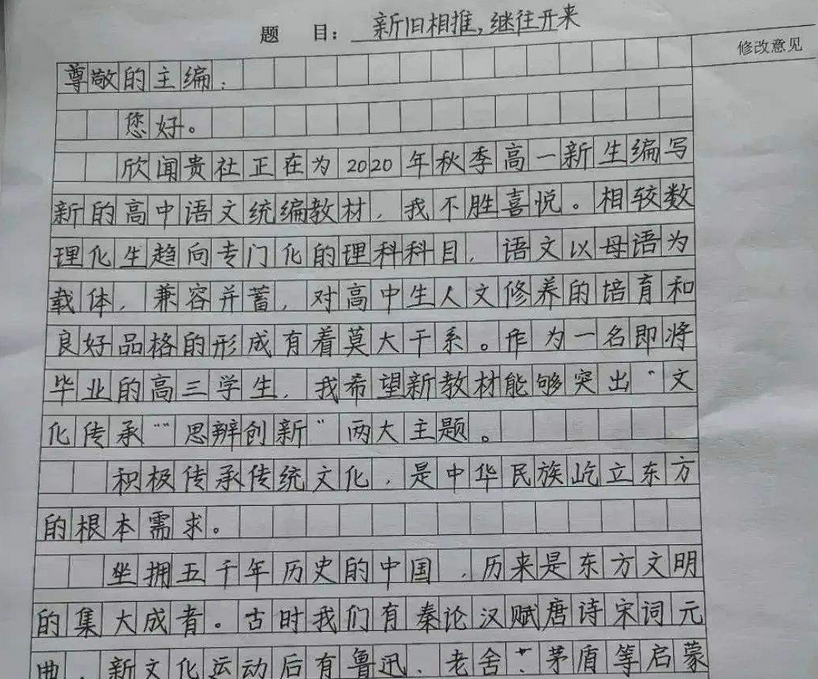 题 目: 新旧相推,继往开来
修改意见
尊敬的主编:
您好。
欣闻贵社正在为2020年秋季高一新生编写
新的高中语文统编教材,我不胜喜悦。相较数
理化生趋向专门化的理科科目,语文以母语为
载体,兼容并蓄,对高中生人文修养的培育和
良好品格的形成有着莫大干系。作为一名即将
毕业的高三学生,我希望新教材能够突出“文
化传承”“思辨创新”两大主题。
积极传承传统文化,是中华民族屹立东方
的根本需求。
坐拥五千年历史的中国,历来是东方文明
的集大成者。古时我们有秦论汉赋唐诗宋词元
曲,新文化运动后有鲁迅、老舍、茅盾等启蒙